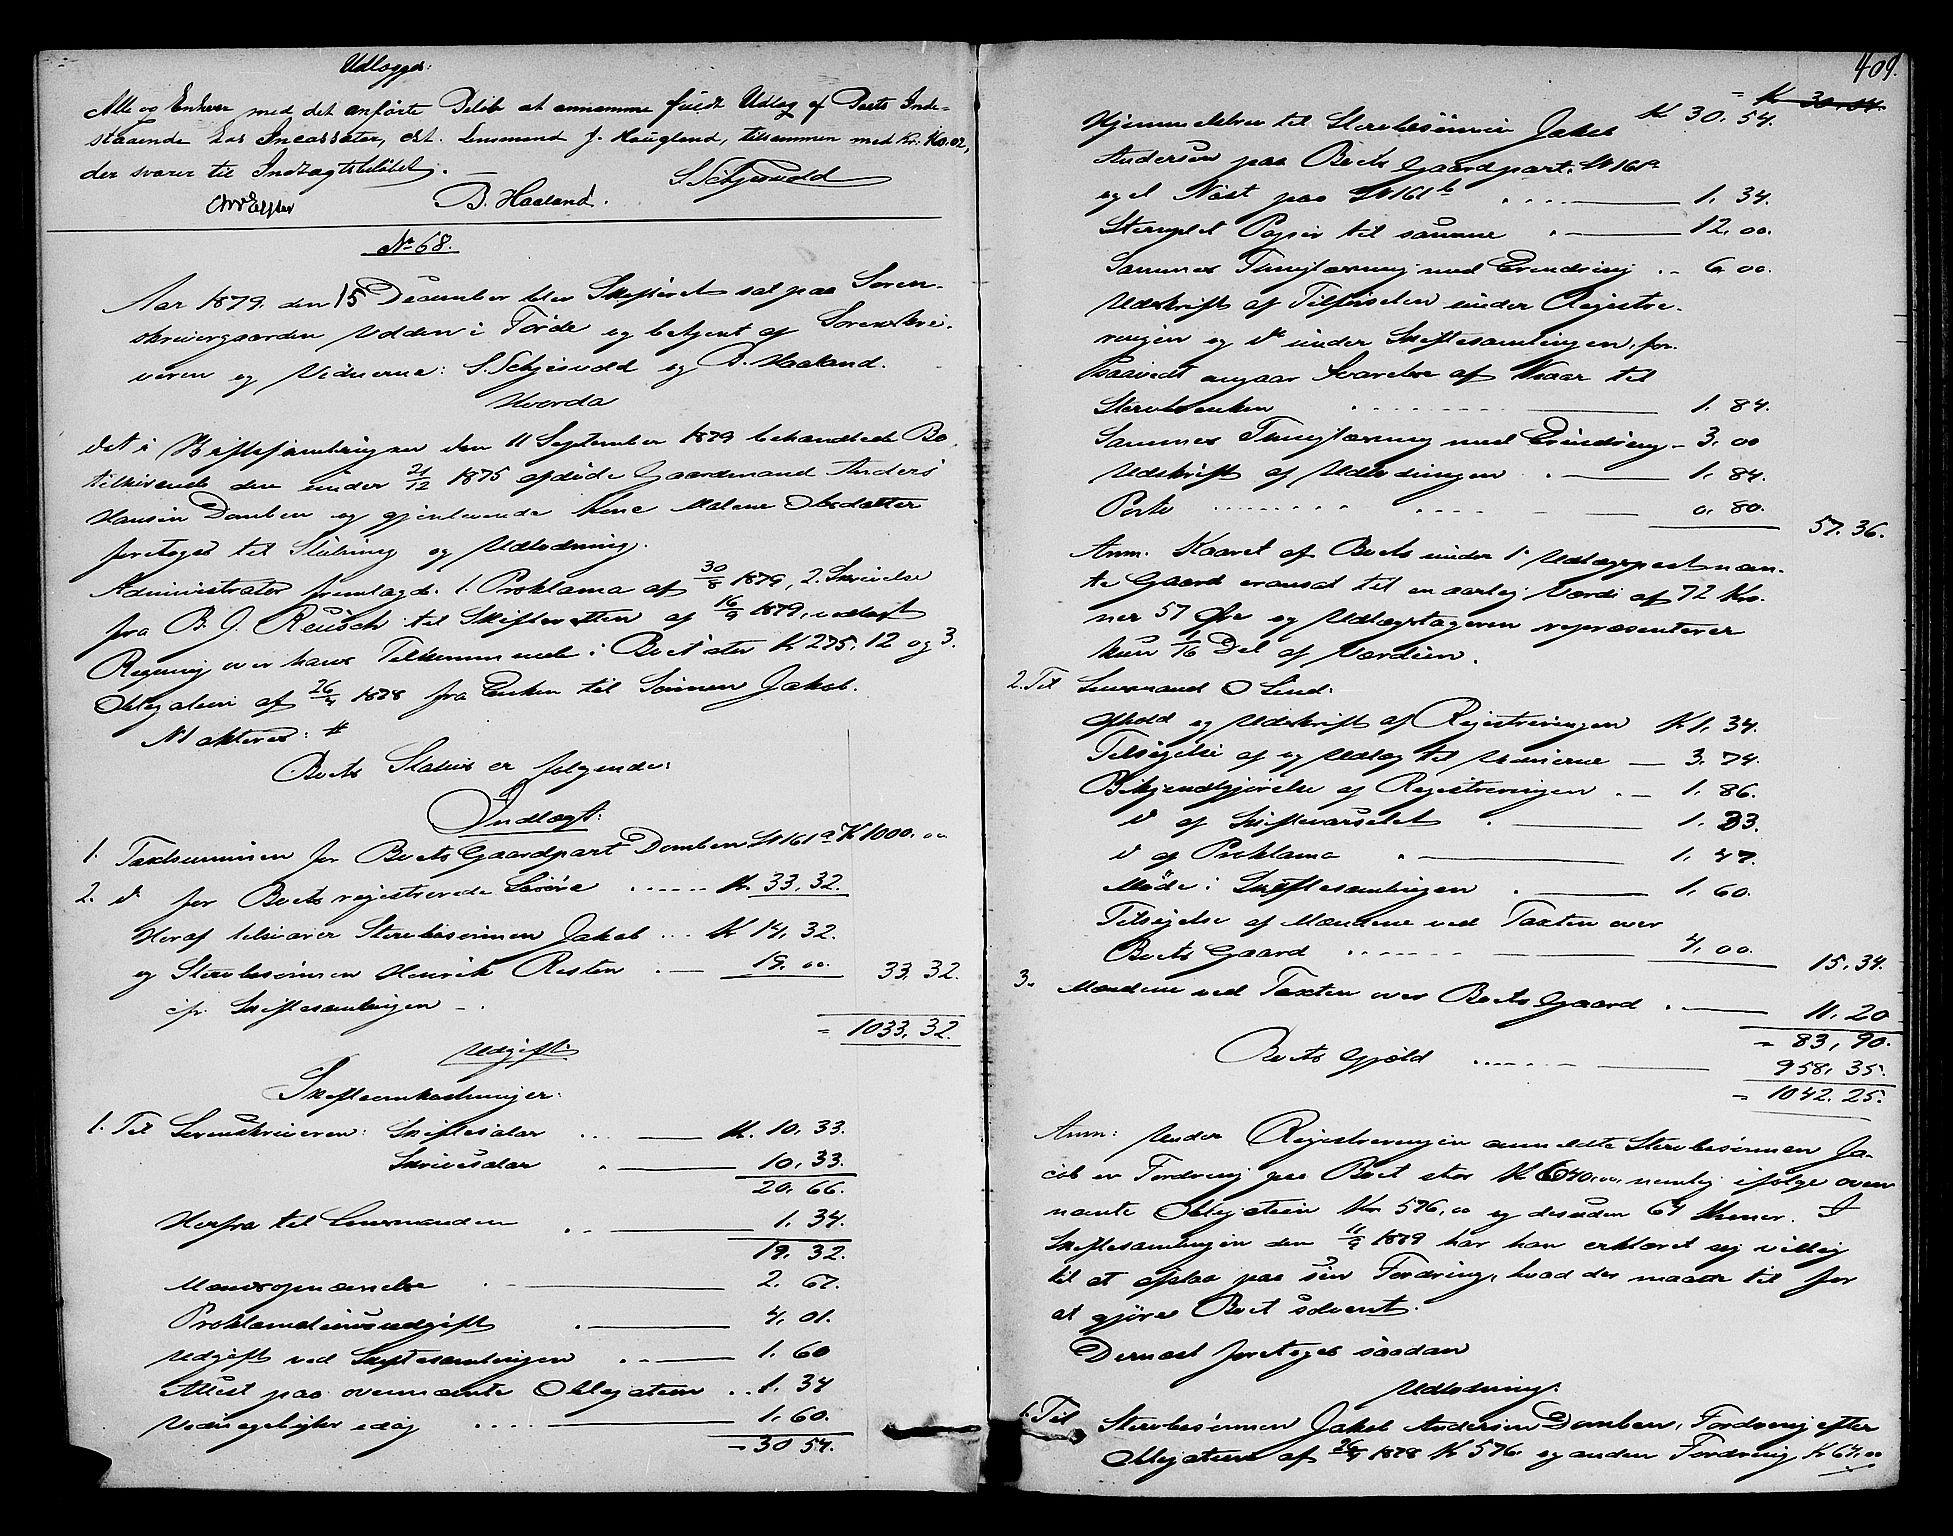 Udlægges:
Alle og Enhver med det anførte Beløb at annamme fuldt Udlæg af Boets Inde-
staaende hos Incassator, cst. Lensmand J. Haugland, tilsammen med Kr. 40.02,
der svarer til Indtægtsbeløbet. —
S. Schjesvold
B. Haaland.
No 68.
Aar 1879. den 15 December blev Skifteret sat paa Soren-
skrivergaarden Udden i Førde og betjent af Sorenskri-
veren og Vidnerne: S. Schjesvold og B. Haaland.
Hvorda
det i Skiftesamlingen den 11 September 1879 behandlede Bo
tilhørende den under 21/12 1875 afdøde Gaardmand Anders
Hansen Domben og gjenlevende Kone Malene Olsdatter
foretoges til Slutning og Udlodning.
Administrator fremlagde: 1. Proklama af 30/8 1879, 2. Skrivelse
fra B. J. Reusch til Skifteretten af 16/9 1879, vedlagt
Regning over hans Tilkommende i Boet stor K 275. 12 og 3.
Obligation af 26/4 1878 fra Enken til Sønnen Jakob.
Nl akteres: #
Boets Status er følgende:
Indtægt:
1. Taxtsummen for Boets Gaardpart Domben No 161a K 1000. 00
2. d for Boets registrerede Løsøre ..... K. 33, 32.
Heraf tilsvarer Sterbesønnen Jakob ... K 14, 32.
og Sterbesønnen Henrik Resten . — 19. 00. 33. 32.
cfr. Skiftesamlingen —.
= 1033, 32.
Udgift:
Skifteomkostninger:
1. Til Sorenskriveren: Skiftesalær ... — K. 10, 33.
Skrivesalær . — 10, 33.
20, 66.
Herfra til Lensmanden .. — 1. 34.
19. 32.
Mandsopnævnelse . — 2. 67.
Proklamationsudgift . — 4, 01.
Udgift ved Skiftesamlingen .. — 1. 60
Attest paa ovennævnte Obligation .. 1. 34
Vidnegodtgjør. idag .... — 1, 60.
= 30 54.
409.
= K 30.54.
Hjemmelsbrev til Sterbesønnen Jakob K 30, 54.
Andersen paa Boets Gaardpart, No 161a
og et Nøst paa No 161b .... — 1, 34.
Stemplet Papir til samme . — 12. 00.
Sammes Tinglæsning med Erindring .. 6. 00.
Udskrift af Tilførselen under Registre-
ringen og d under Skiftesamlingen, for-
saavidt angaar Svarelse af Kaar til
Sterbenken ........ — 1. 84.
Sammes Tinglæsning med Erindring — 3. 00
Udskrift af Udlodningen . — 1, 84.
Porto ........ — 0. 80.
57. 36.
Anm. Kaaret af Boets under 1ste Udlægspost næv-
te Gaard er ansat til en aarlig Værdi af 72 Kro-
ner 57 Øre og Udlægstageren repræsenterer
kun 1/16 Del af Værdien.
2. Til Lensmand O Lind:
Ophold og Udskrift af Registreringen K 1, 34.
Tilsigelse af og Udlæg til Vidnerne — 3, 74.
Bekjendtgjørelse af Registreringen . — 1. 86.
d af Skiftevarselet . — 1. 33.
d af Proklama . — 1, 47.
Møde i Skiftesamlingen . — 1. 60.
Tilsigelse af Mændene ved Taxten over
Boets Gaard ...... — 4, 00.
15, 34.
3. Mændene ved Taxten over Boets Gaard . — 11, 20
= 83, 90.
Boets Gjæld ..... — 958, 35.
= 1042. 25.
Anm: Under Registreringen anmeldte Sterbesønnen Ja-
cob en Fordring paa Boet stor K 640,00, nemlig ifølge oven
nævnte Obligation Kr. 576, 00 og desuden 64 Kroner. I
Skiftesamlingen den 11/9 1879 har han erklæret sig villig
til at afslaa paa sin Fordring, hvad der maatte til for
at gjøre Boet solvent.
Dernæst foretoges saadan
Udlodning:
1. Til Sterbesønnen Jakob Andersen Domben, Fordring efter
Obligation af 26/4 1878 K 576. og anden Fordring K 64. 00